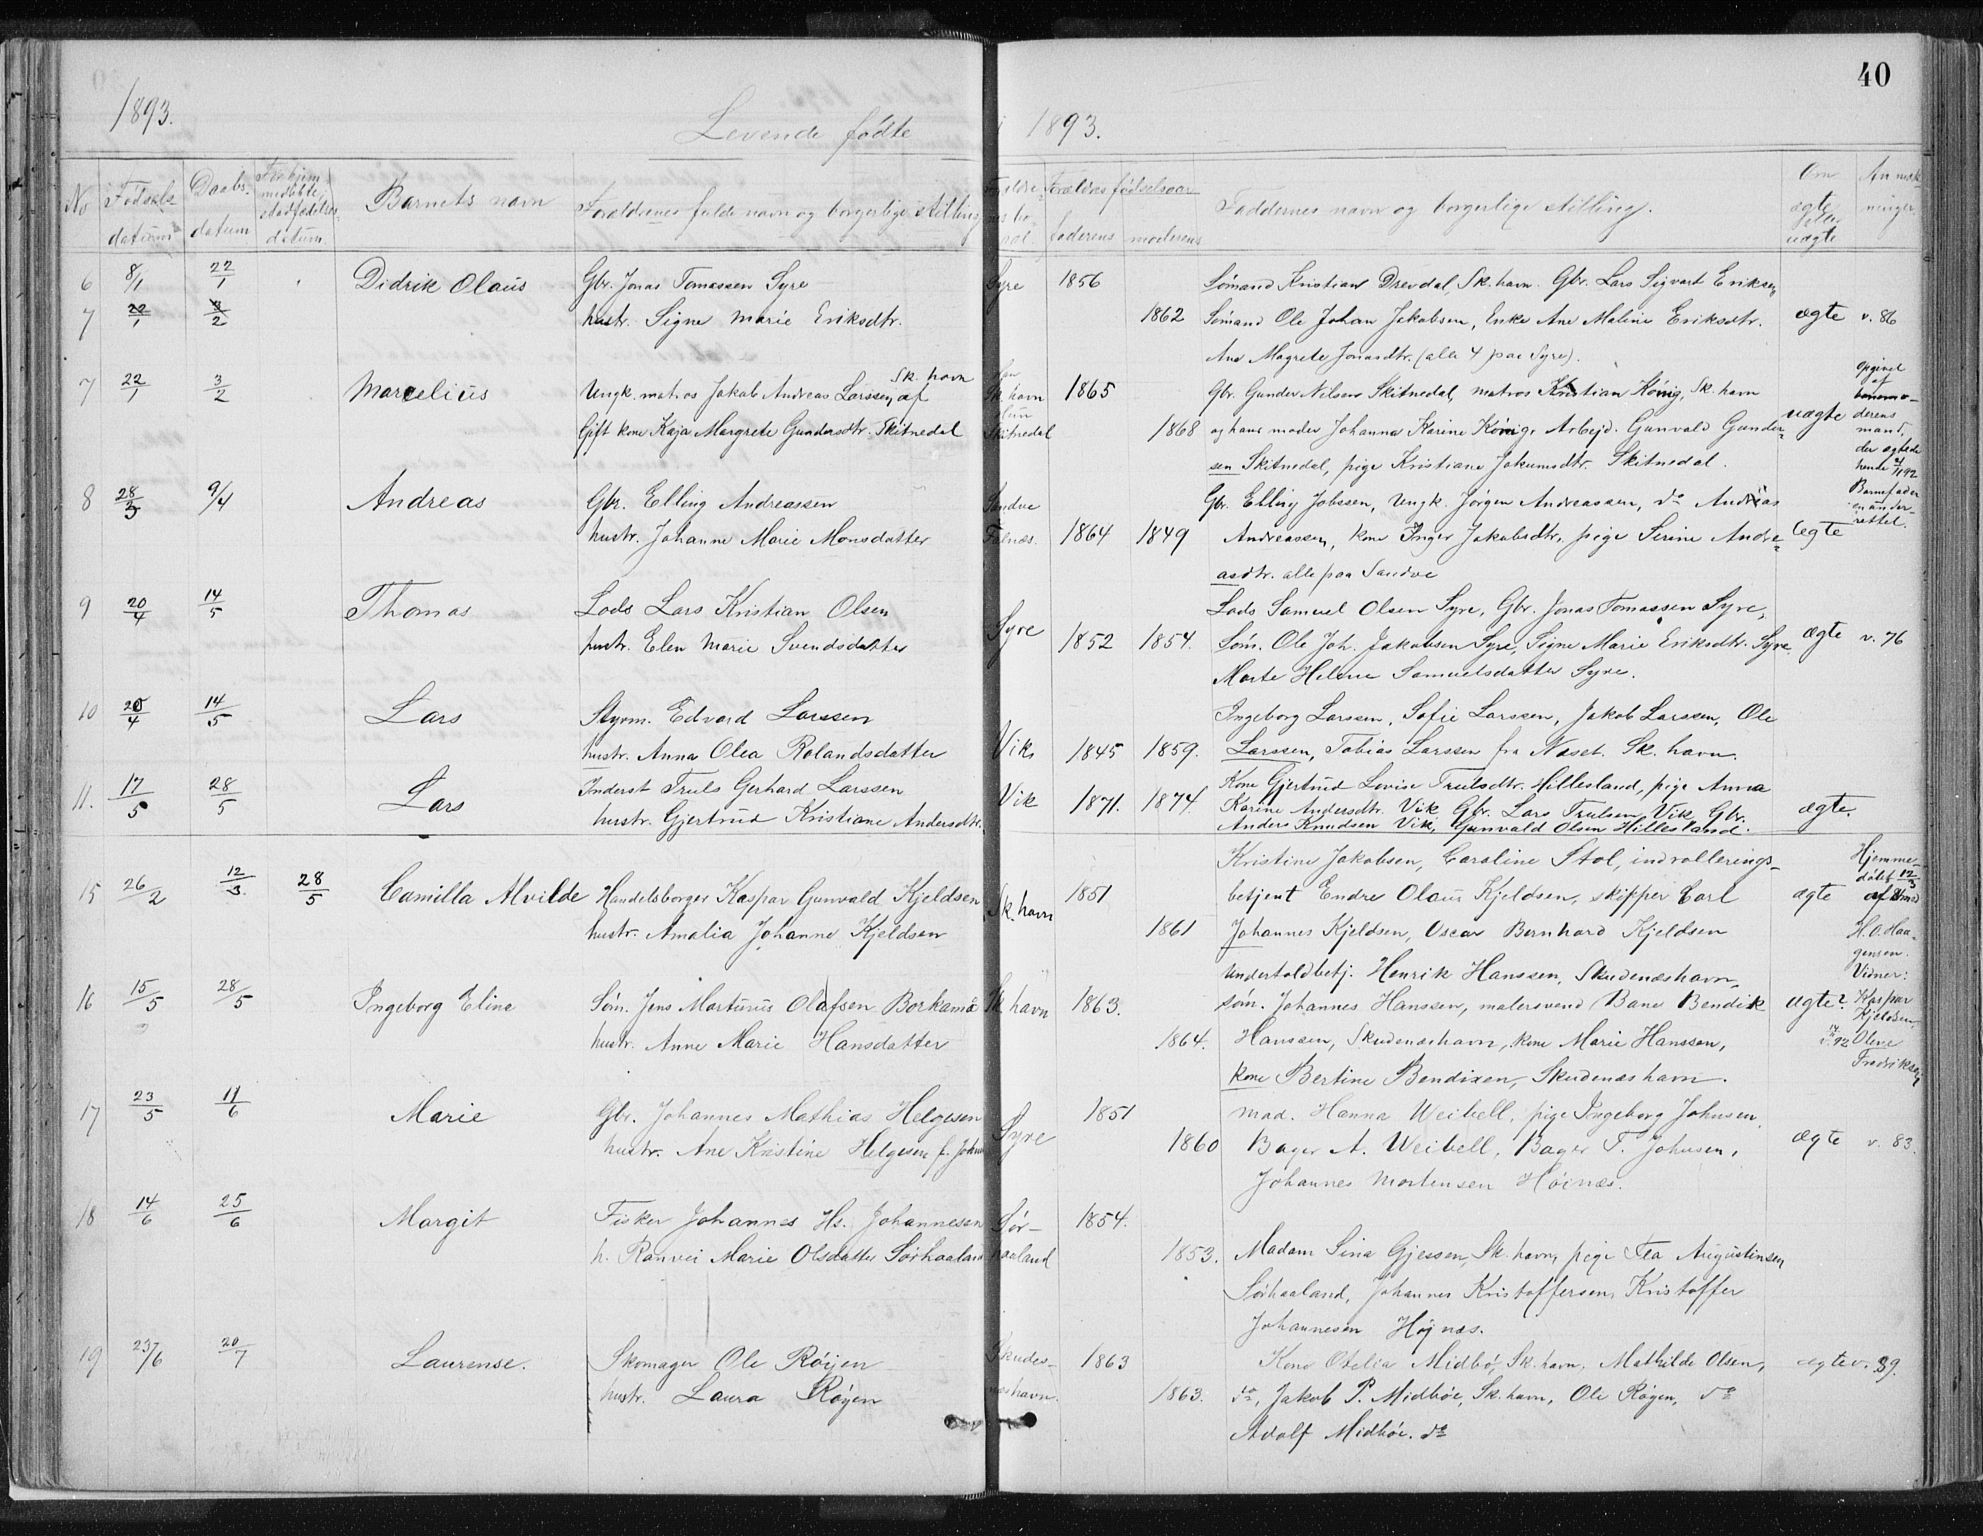 40
1893.
Levende fødte i 1893.
No
Fødsels-datum
Daabs-datum
For hjemmedøbte, stadfæstelses datum
Barnets navn
Forældrenes fulde navn og borgerlige stilling
Forældrenes bopæl
Forældres fødselsaar
faderens
moderens
Faddernes navn og borgerlige stilling.
Om ægte eller uægte
Anmærkninger
6 8/1 22/1 Didrik Olaus Gbr. Jonas Tomassen Syre Syre 1856 Sømand Kristian Drevdal, Sk.havn. Gbr. Lars Sigvart Eriksen
7 20/1 3/2 hustr. Signe Marie Eriksdtr. 1862 Sømand Ole Johan Jakobsen, Enke Ane Maline Eriksdtr. ægte v. 86
Ane Magrete Jonasdtr. (alle 4 paa Syre).
7 22/1 3/2 Marcelius Ungk. matros Jakob Andreas Larssen af Sk.havn Sk.havn 1865 Gbr. Gunder Nilsen Skitnedal, matros Kristian König, Sk.havn
Gift kone Kaja Margrete Gundersdtr. Skitnedal Skitnedal 1868 og hans moder Johanna Karine König, Arbejd. Gunvald Gunder-
sen Skitnedal, pige Kristiane Jokumsdtr. Skitnedal.
uægte opgivet af barnemoderens mand, der ægtede hende
Barnefader en anden
8 28/3 9/4 Andreas Gbr. Elling Andreassen Sandve Gbr. Elling Jobssen, Ungk. Jørgen Andreassen, do Andreas
hustr. Johanne Marie Monsdatter Falnæs. 1864 1849 Andreassen, kone Inger Jakobsdtr. pige Serine Andre- Ægte
asdtr. alle paa Sandve
9 20/4 14/5 Thomas Lods Lars Kristian Olsen Syre Lods Samuel Olsen Syre, Gbr. Jonas Tomassen Syre,
hustr. Elen Marie Svendsdatter 1852 1854. Søm. Ole Joh. Jakobsen Syre, Signe Marie Eriksdtr. Syre ægte v. 76
Marte Helene Samuelsdatter Syre.
10 20/4 14/5 Lars Styrm. Edvard Larssen Ingeborg Larssen, Sofie Larssen, Jakob Larssen, Ole
hustr. Anna Olea Rolandsdatter Vik 1845 1859. Larssen, Tobias Larssen fra Næset. Sk.havn.
11. 17/5 28/5 Lars Inderst Truls Gerhard Larssen Vik 1871. 1874. Kone Gjertrud Lovise Trulsdtr. Hillesland, pige Anna
hustr. Gjertrud Kristiane Andersdtr. Karine Andersdtr. Vik, Gbr. Lars Trulsen Vik, Gbr. ægte.
Anders Knudsen Vik, Gunvald Olsen Hillesland.
Kristine Jakobsen, Caroline Stol, indrullerings-
15 26/2 12/3. 28/5 Camilla Alvilde Handelsborger Kaspar Gunvald Kjeldsen Sk.havn 1851 betjent Endre Olaus Kjeldsen, skipper Carl ægte
hustr. Amalia Johanne Kjeldsen 1861 Johannes Kjeldsen, Oscar Bernhard Kjeldsen
Hjemmedøbt 12/3 af H.O. Haagensen. Vidner: Kaspar Kjeldsen, Oline Fredriksen
Undertoldbetj. Henrik Hanssen, Skudenæshavn,
16 15/5 28/5 Ingeborg Eline Søm. Jens Martinius Olafsen Borkamo Sk.havn 1863. søm. Johannes Hanssen, malersvend Bane Bendik ægte?
hustr. Anne Marie Hansdatter 1864. Hanssen, Skudenæshavn, kone Marie Hanssen, v. 92
kone Bertine Bendixen, Skudenæshavn.
17 23/5 11/6 Marie Gbr. Johannes Mathias Helgesen Syre 1851 mad. Hanna Weibell, pige Ingeborg Johnsen,
hustr. Ane Kristine Helgesen f. Johns 1860 Bager A. Weibell, Bager T. Johnsen, Ægte v. 83.
Johannes Mortensen Høinæs.
18 14/6 25/6 Margit Fisker Johannes Hs. Johannesen Sør- 1854.
h. Ranvei Marie Olsdatter Sørhaaland haaland 1853. Madam Sina Gjessen, Sk.havn, pige Tea Augustinsen
Sørhaaland, Johannes Kristoffersen, Kristoffer
Johannesen Højnæs.
19 23/6 20/7 Laurense. Skomager Ole Röijen Skudes- 1863 Kone Otelia Midbö, Sk.havn, Mathilde Olsen, ægte v. 89.
hustr. Laura Røyen næshavn. 1863. do, Jakob P. Midböe, Sk.havn, Ole Røyen, do
Adolf Midböe. do